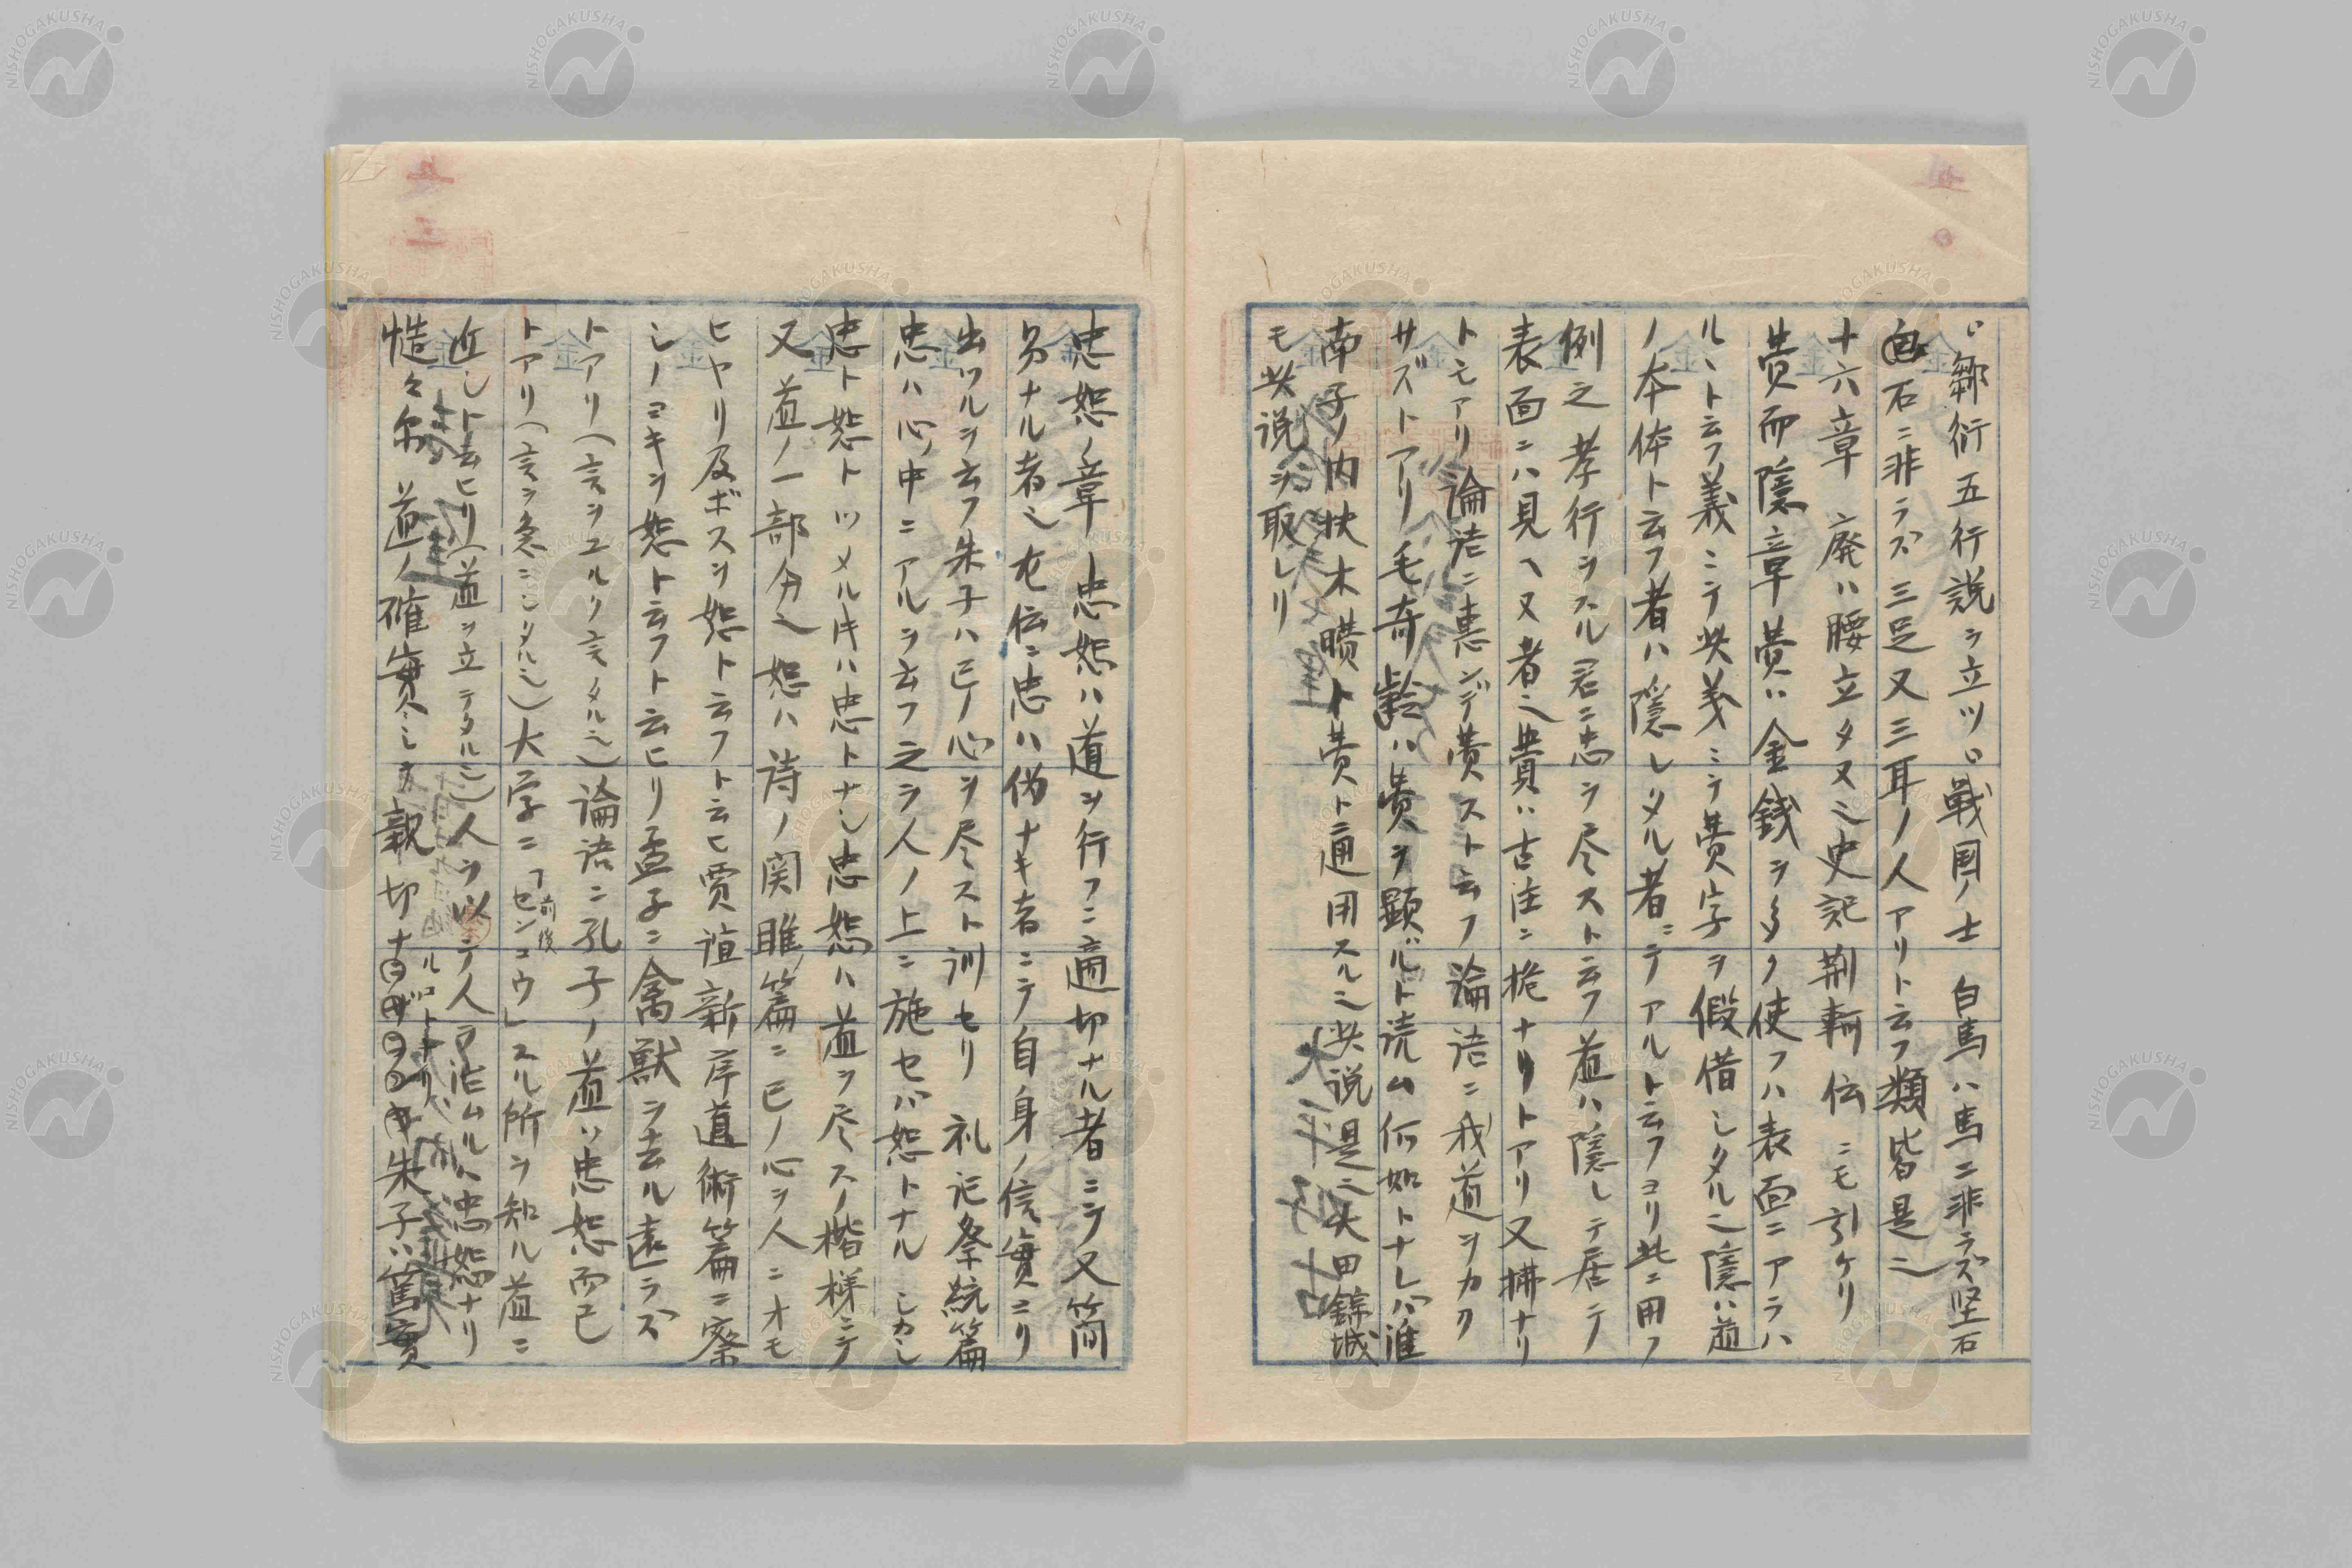 鄒衍五行説ヲ立ツ戦国ノ士 白馬ハ馬ニ非ラズ堅石
石ニ非ラズ三足又三耳ノ人アリト云フ類皆是ニ
十六章 廃ハ腰立タヌ之史記荊軻伝ニモ引ケリ
費而隠章 費ハ金銭ヲ多ク使フハ表面ニアラハ
ルヽト云フ義ニテ此義ミテ費字ヲ假借シタル之隠ハ道
ノ本体ト云フ者ハ隠レタル者ニテアルト云フヨリ此ニ用フ
例之孝行ヲスル君ニ忠ヲ尽スト云フ道ハ隠レテ居テ
表面ニハ見ヘヌ者之費ハ古注ニ桅ナリトアリ又拂ナリ
トモアリ論語ニ恵ンデ費スト云フ論語ニ我道ヲカク
サズトアリ毛奇齢ハ費ヲ顕ルト読ム何如トナレバ淮
南子ノ内状大曊ト費ト通用スル之此説是ニ大田錦城
モ此説ヲ取レリ
忠恕ノ章 忠恕ハ道ヲ行フニ適切ナル者ニテ又簡
易ナル者之左伝ニ忠ハ偽ナキ者ニテ自身ノ信實ニリ
出ヅルヲ云フ朱子ハ己ノ心ヲ尽スト訓セリ 礼記祭統篇
忠ハ心中ニアルヲ云フ之ヲ人ノ上ニ施セバ恕トナル シカシ
忠ト恕トツメル片ハ忠トナシ忠恕ハ道ヲ尽スノ楷様ニテ
又道ノ一部分之 恕ハ詩ノ関雎篇ニ己ノ心ヲ人ニオモ
ヒヤリ及ボスヲ恕ト云フト云ヒ賈誼新序道術篇ニ察
シノヨキヲ恕ト云フト云ヒリ孟子ニ禽獣ヲ去ル遠ラズ
トアリ（言ヲユルク言タル之）論語ニ孔子ノ道ハ忠恕而已
トアリ（言ヲ急ニシタル之）大学ニ「前後センコウ」スル所ヲ知ル道ニ
近シト云ヒリ（道ヲ立テタル之）人ヲ以テ人ヲ治ムルハ忠恕ナリ
慥々尓 道ノ確實ニシテ親切ナ 朱子ハ篤實